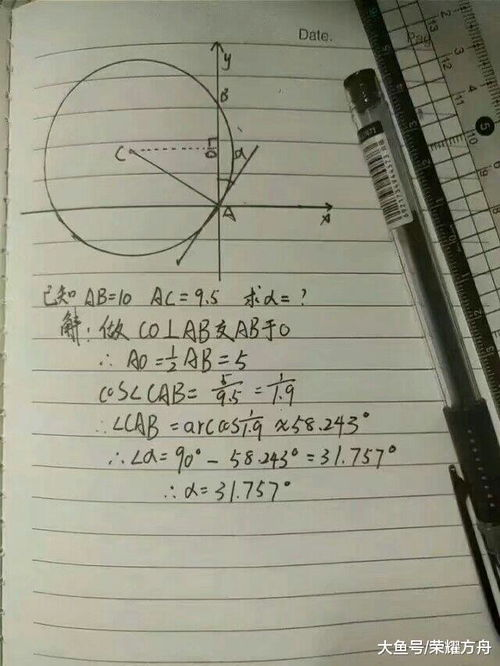 Date.
Pag
y
B
C
O
α
A
x
5
已知 AB=10 AC=9.5 求α=?
解:做 CO⊥AB交AB于O
∴ AO=½AB=5
COS∠CAB= 5/9.5 = 1/1.9
∴∠CAB=arccos1/1.9 ≈58.243°
∴∠α=90°-58.243°=31.757°
∴α=31.757°
大鱼号/荣耀方舟